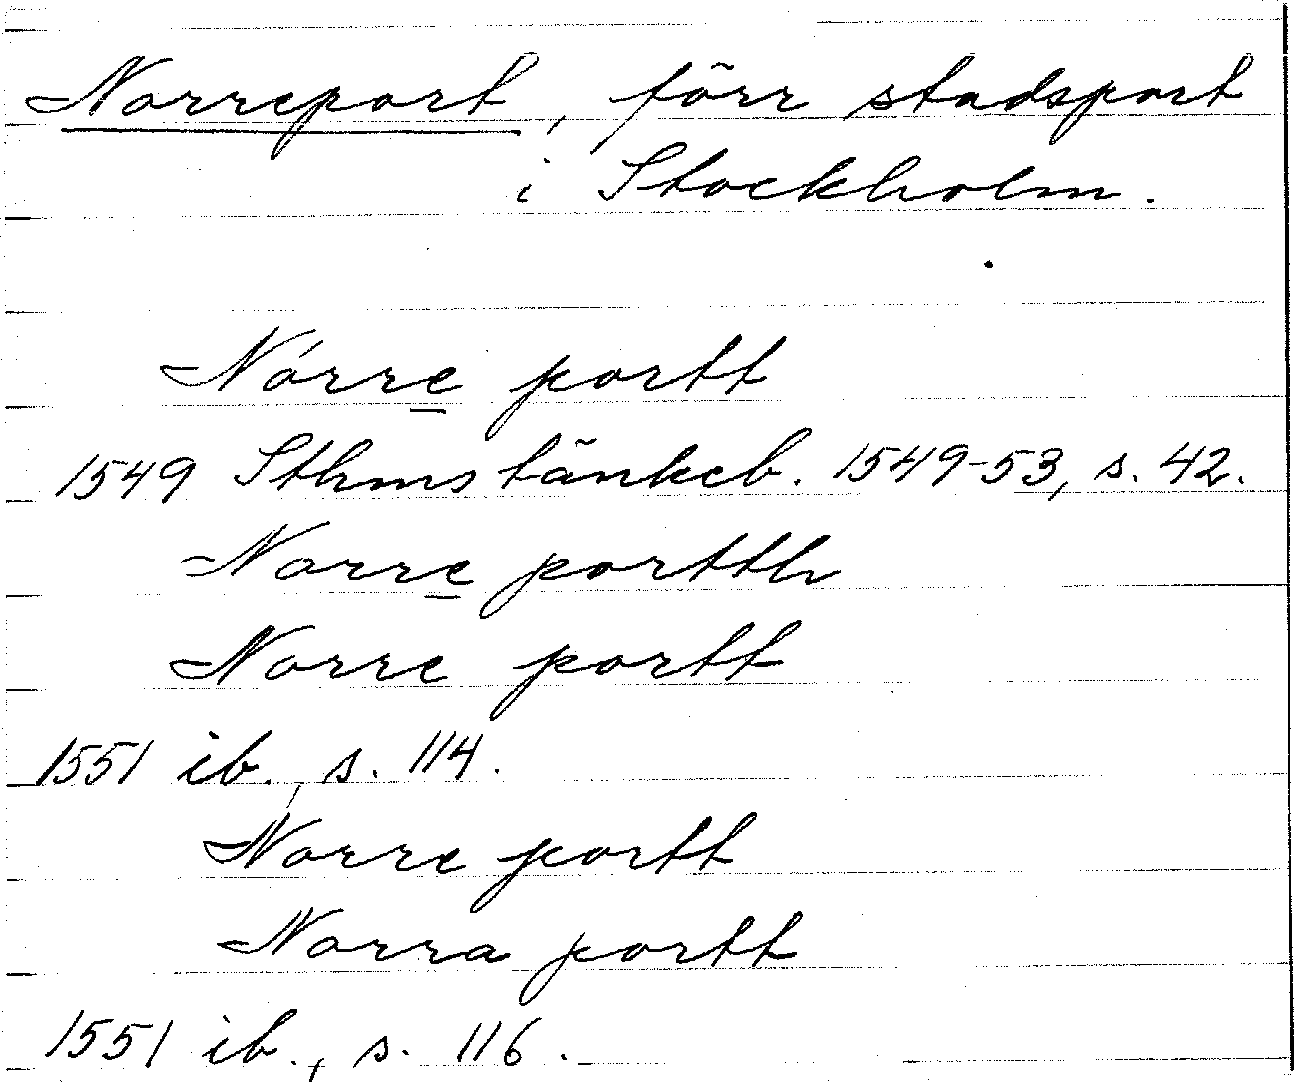 Norreport, förr stadsport
i Stockholm.
Nórre portt
1549 Sthms tänkeb. 1549-53, s. 42.
Norre portth
Norre portt
1551 ib., s. 114.
Norre portt
Norra portt
1551 ib., s. 116.